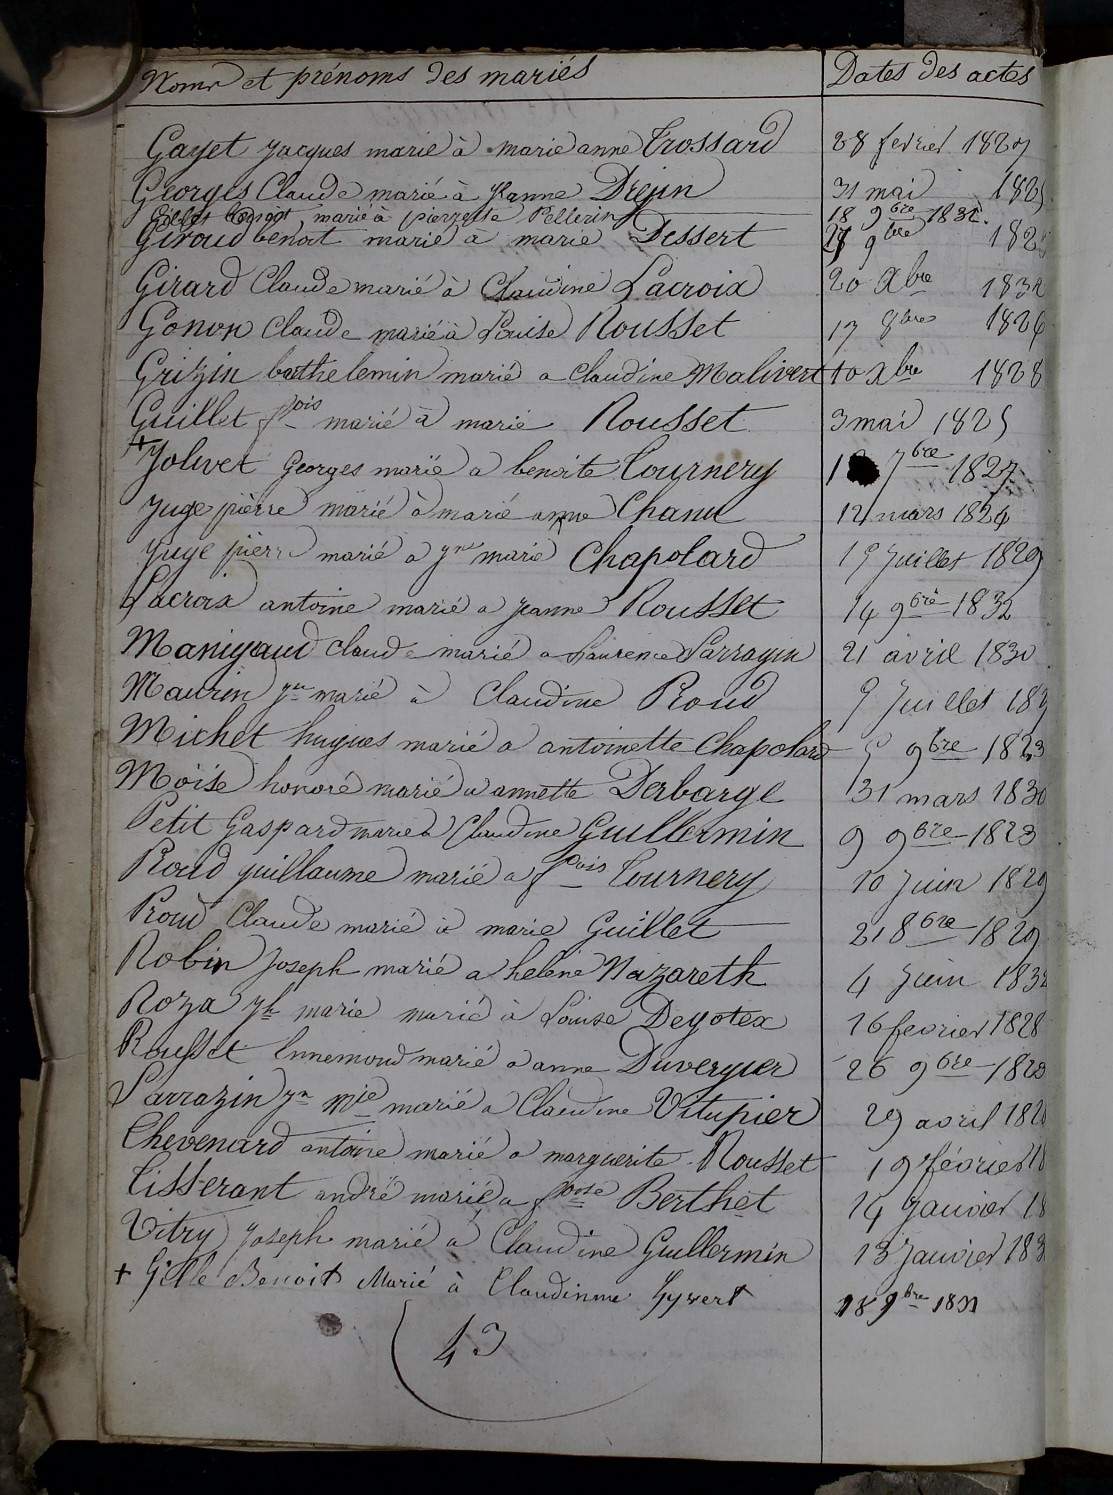 Noms et prénoms des mariés Dates des actes
Gayet Jacques marié à marie anne Trossard 28 fevrier 1829
Georges Claude marié à Jeanne Drejin 31 mai 182
benoit marié à pierrette Pellerin 18 9bre 1832.
Giroud benoit marié à marie Dessert 9bre 182
Girard Claude marié à Claudine Lacroix 20 Xbre 1832
Gonon Claude marié à Louise Rousset 17 9bre 1826
Grizin barthelemin marié a Claudine Malivert 10 Xbre 1828
Guillet fois marié à marie Rousset 3 mai 1825
+ Jolivet Georges marié a benoite Tournery 7bre 1827
Juge pièrre marié à marie anne Chanu 12 mars 1826
Juge pièrre marié a Jne marie Chapolard 15 Juillet 1829
Lacroix antoine marié a Jeanne Rousset 14 9bre 1832
Manigaud Claude marié a Laurence Sarrazin 21 avril 1830
Maurin marié à Claudine Proud 9 Juillet 18
Michet hugues marié a antoinette Chapolard 5 9bre 1823
Moïse honoré marié a annette Derbarge 31 mars 1830
Petit Gaspard marié à Claudine Guillermin 9 9bre 1823
Proud guillaume marié a foise Tournery 10 Juin 1829
Proud Claude marié à marie Guillet 21 8bre 1829
Robin Joseph marié a helene Nazareth 4 Juin 1832
Roza Jh marie marié à Louise Deyotex 16 fevrier 1828
Rousset Ennemond marié a anne Duvergier 26 9bre 1823
Sarrazin Jn mie marié a Claudine Vitupier 29 avril 182
Thevenard antoine marié a marguerite Rousset 19 février 18
Tisserant andré marié a foise Berthet 14 Janvier 18
Vitry Joseph marié à Claudine Guillermin 13 Janvier 183
+ Gille Benoit Marié à Claudinne Hyvert 18 9bre 1831
43